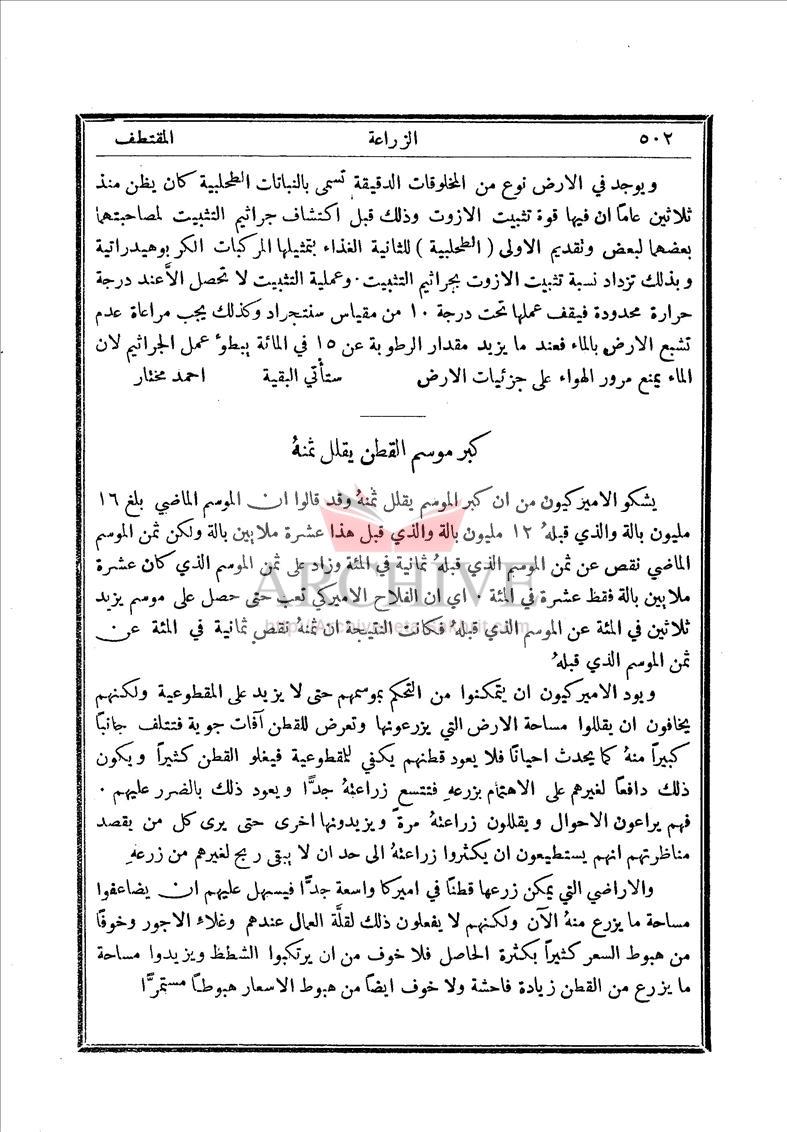 ٥٠٢ الزراعة المقتطف
ويوجد في الارض نوع من المخلوقات الدقيقة تسمى بالنباتات الطحلبية كان يظن منذ
ثلاثين عاماً ان فيها قوة تثبيت الازوت وذلك قبل اكتشاف جراثيم التثبيت لمصاحبتهما
بعضهما لبعض وتقديم الاولى ( الطحلبية ) للثانية الغذاء بتمثيلها المركبات الكربوهيدراتية
وبذلك تزداد نسبة تثبيت الازوت بجراثيم التثبيت . وعملية التثبيت لا تحصل الاَّ عند درجة
حرارة محدودة فيقف عملها تحت درجة ١٠ من مقياس سنتجراد وكذلك يجب مراعاة عدم
تشبع الارض بالماء فعند ما يزيد مقدار الرطوبة عن ١٥ في المائة يبطوء عمل الجراثيم لان
الماء يمنع مرور الهواء على جزئيات الارض ستأتي البقية احمد مختار
كبر موسم القطن يقلل ثمنهُ
يشكو الاميركيون من ان كبر الموسم يقلل ثمنهُ وقد قالوا ان الموسم الماضي بلغ ١٦
مليون بالة والذي قبلهُ ١٢ مليون بالة والذي قبل هذا عشرة ملايين بالة ولكن ثمن الموسم
الماضي نقص عن ثمن الموسم الذي قبلهُ ثمانية في المئة وزاد على ثمن الموسم الذي كان عشرة
ملايين بالة فقط عشرة في المئة . اي ان الفلاح الاميركي تعب حتى حصل على موسم يزيد
ثلاثين في المئة عن الموسم الذي قبلهُ فكانت النتيجة ان ثمنهُ نقص ثمانية في المئة عن
ثمن الموسم الذي قبلهُ
ويود الاميركيون ان يتمكنوا من التحكم بموسمهم حتى لا يزيد على المقطوعية ولكنهم
يخافون ان يقللوا مساحة الارض التي يزرعونها وتعرض للقطن آفات جوية فتتلف جانباً
كبيراً منهُ كما يحدث احياناً فلا يعود قطنهم يكفي للمقطوعية فيغلو القطن كثيراً ويكون
ذلك دافعاً لغيرهم على الاهتمام بزرعهِ فتتسع زراعتهُ جدًّا ويعود ذلك بالضرر عليهم .
فهم يراعون الاحوال ويقللون زراعتهُ مرةً ويزيدونها اخرى حتى يرى كل من يقصد
مناظرتهم انهم يستطيعون ان يكثروا زراعتهُ الى حد ان لا يبقى ربح لغيرهم من زرعهِ
والاراضي التي يمكن زرعها قطناً في اميركا واسعة جدًّا فيسهل عليهم ان يضاعفوا
مساحة ما يزرع منهُ الآن ولكنهم لا يفعلون ذلك لقلَّة العمال عندهم وغلاء الاجور وخوفاً
من هبوط السعر كثيراً بكثرة الحاصل فلا خوف من ان يرتكبوا الشطط ويزيدوا مساحة
ما يزرع من القطن زيادة فاحشة ولا خوف ايضاً من هبوط الاسعار هبوطاً مستمرًّا
ARCHIVE